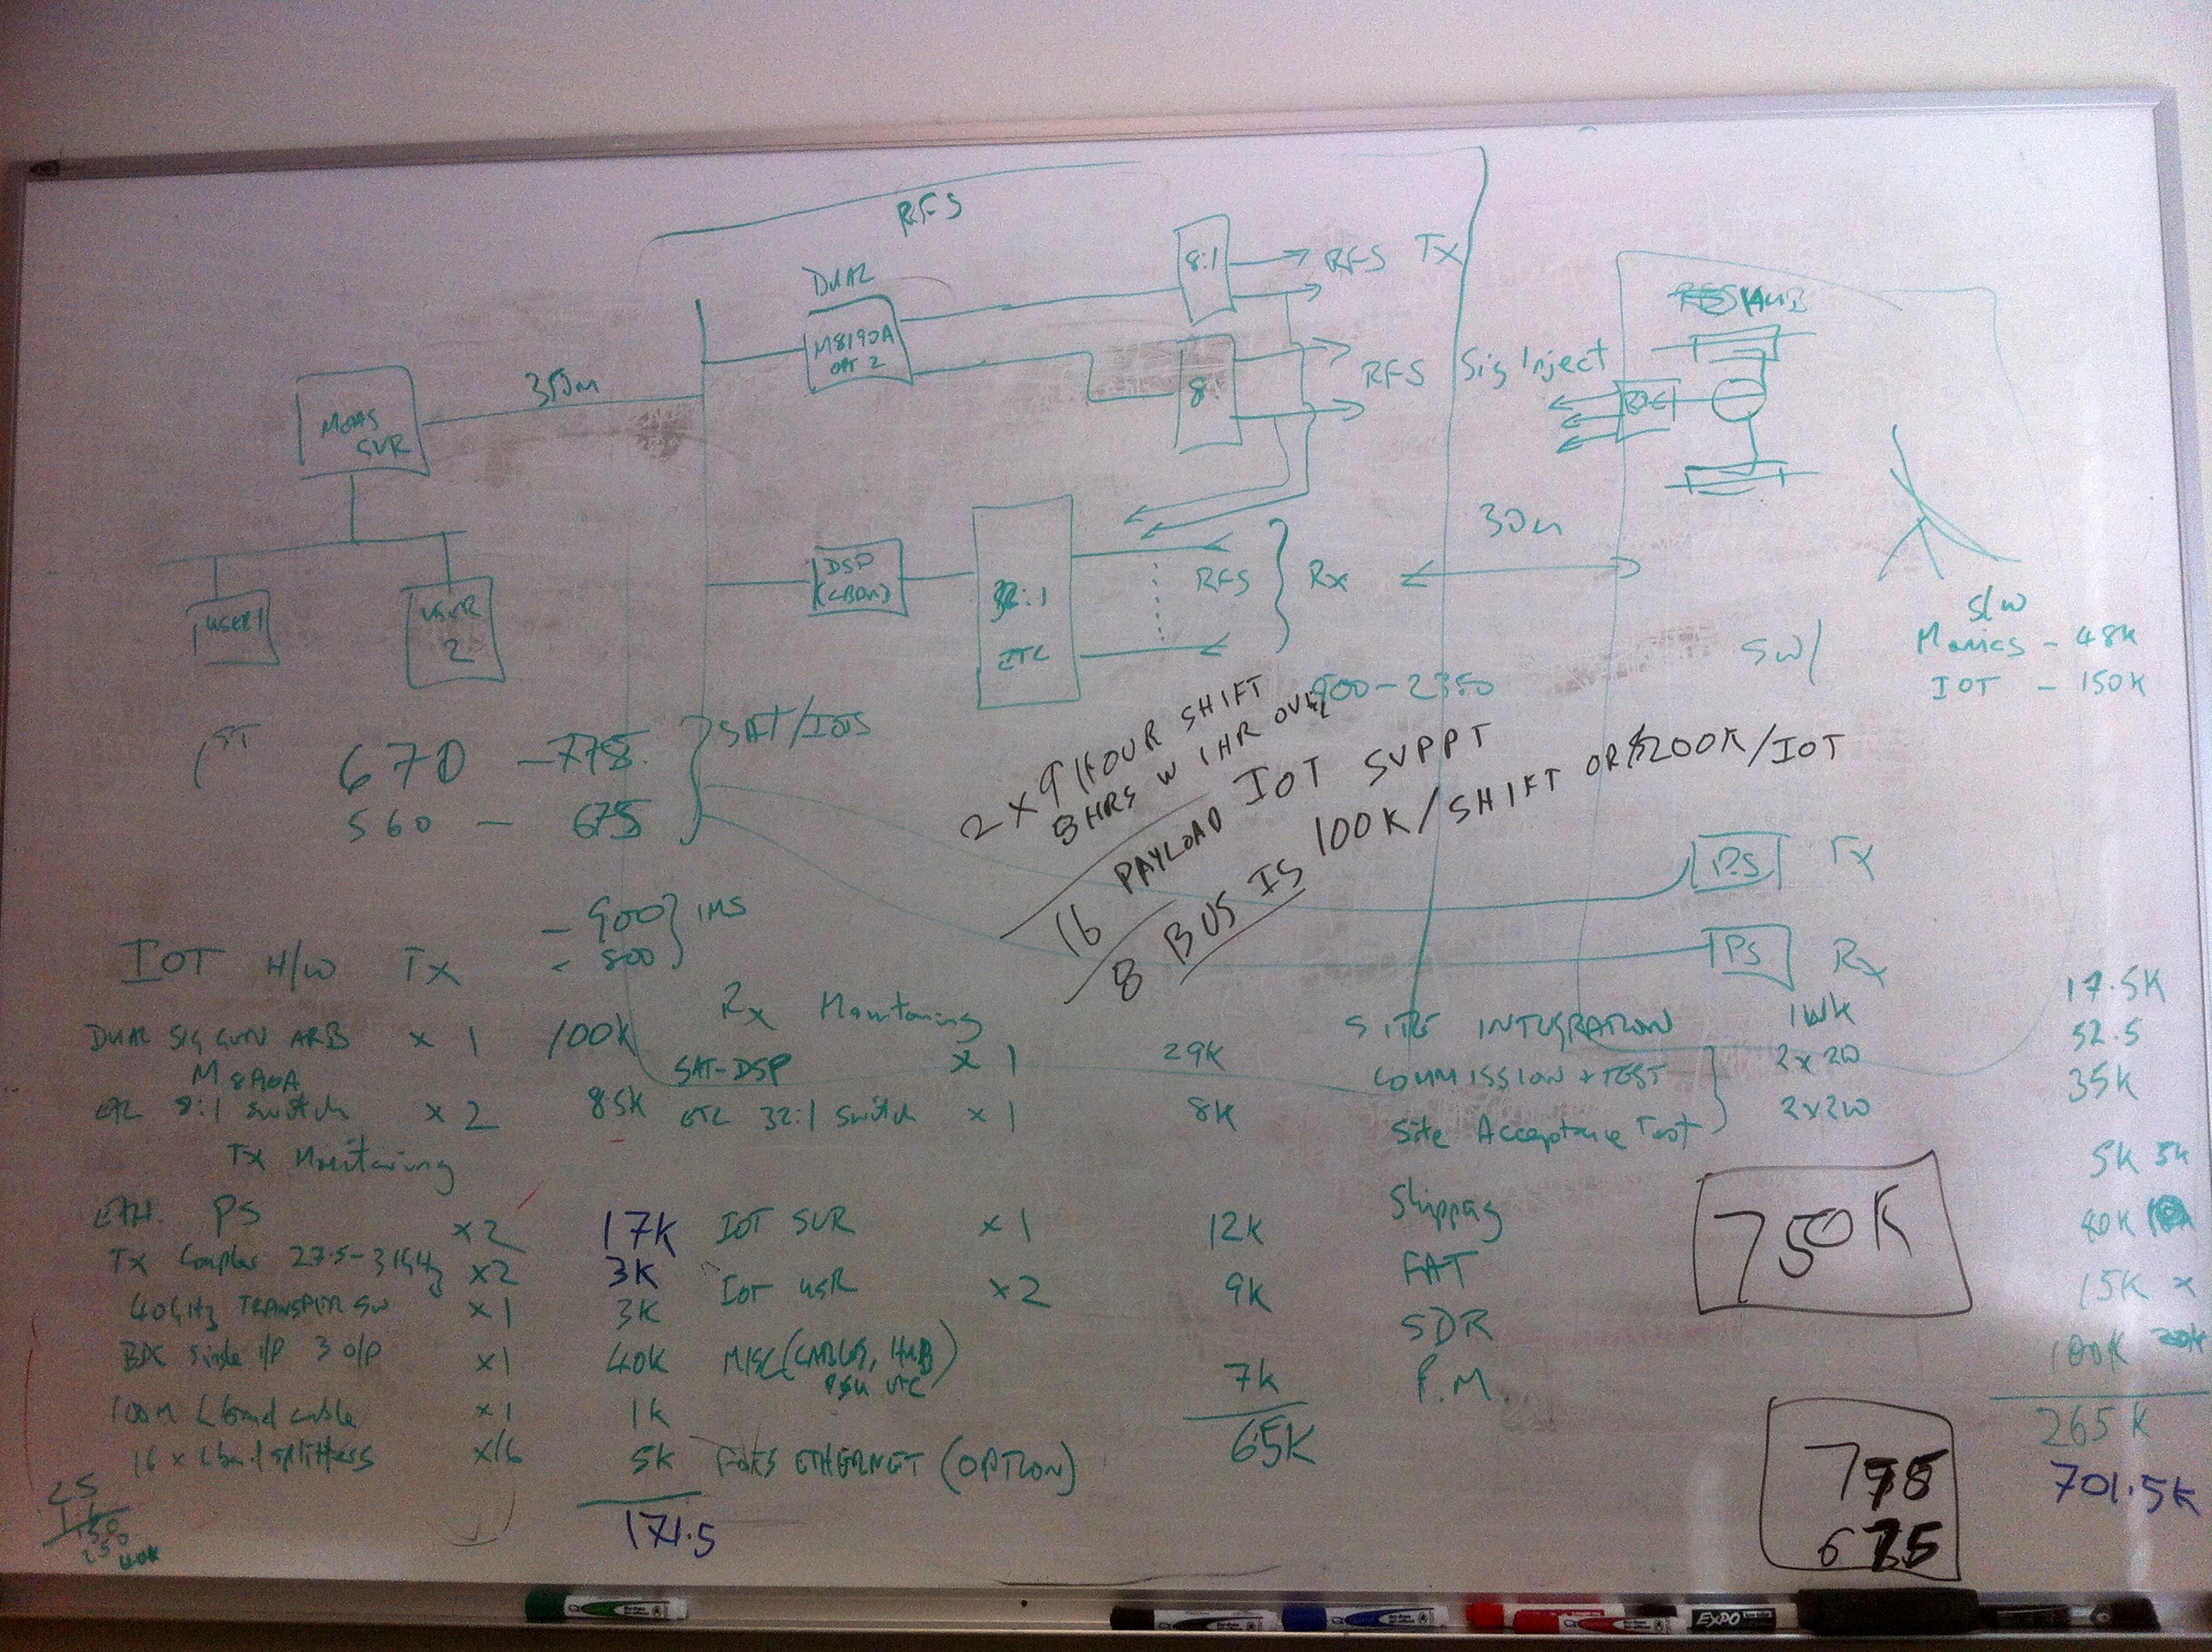 RFS
8:1
RFS Tx
DUAL
M8190A
OPT 2
8:
RFS
Sig Inject
BDC
MEAS
SVR
350m
30m
DSP
(LBAND)
32:1
ETL
RFS
Rx
USER 1
USER
2
S/W
Monics - 48K
IOT - 150K
SW/
900-2350
1ST
670 - 778
560 - 675
SAT/IOTS
- 900
- 800
IMS
2 x 9 HOUR SHIFT
8HRS W 1HR OVERL
16 PAYLOAD IOT SUPPT
8 BUS IS 100K/SHIFT OR $200K/IOT
PS Tx
PS Rx
IOT H/W Tx
DUAL SIG GEN ARB x 1 100K
M8190A
ETL 8:1 Switch x 2 8.5K
Tx Monitoring
ETH. PS x2 17K
Tx Coupler 27.5-31GHz x2 3K
40GHz TRANSFER SW x1 3K
BDC Single I/P 3 O/P x1 40K
100M L band cable x1 1K
16 x L band splitters x16 5K
171.5
Rx Monitoring
SAT-DSP x 1 29K
ETL 32:1 Switch x 1 8K
IOT SVR x1 12K
IOT USR x2 9K
MISC (CABLES, HUB
7K
65K
ETHERNET (OPTION)
SITE INTEGRATION 1WK 17.5K
COMMISSION + TEST 2x2W 52.5
Site Acceptance Test 2x2W 35K
Shipping 5K 5K
FAT
SDR 15K x
P.M. 100K 20K
265K
701.5K
750K
778
675
25
40K
EXPO